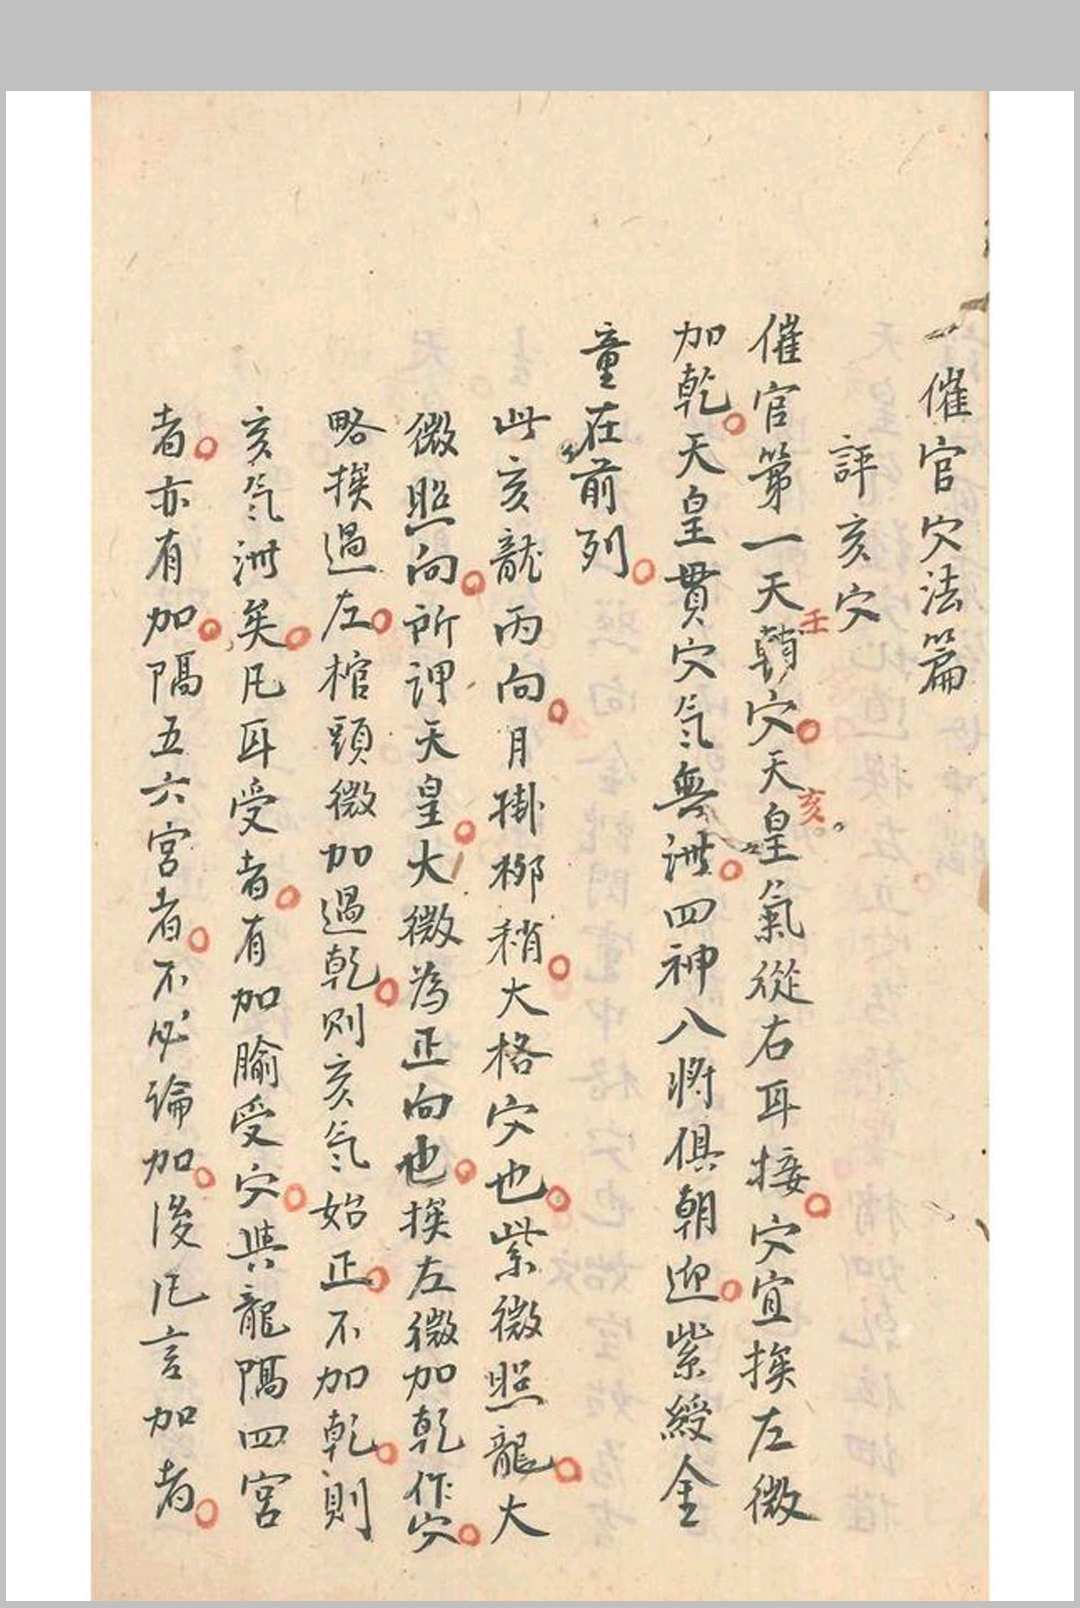 一催官穴法篇
評亥穴
催官第一天鞘穴天皇氣從右耳接穴宜挨左微
壬
亥
加乾天皇貫穴气無泄四神八將俱朝迎紫綬金
童在前列
此亥龍丙向月掛栁稍大格穴也紫微照龍大
微照向所謂天皇大微為正向也挨左微加乾作穴
略挨過左棺頭微加過乾則亥气始正不加乾則
亥气泄矣凡耳受者有加腧受穴與龍隔四宮
者亦有加隔五六宮者不必論加後凡言加者